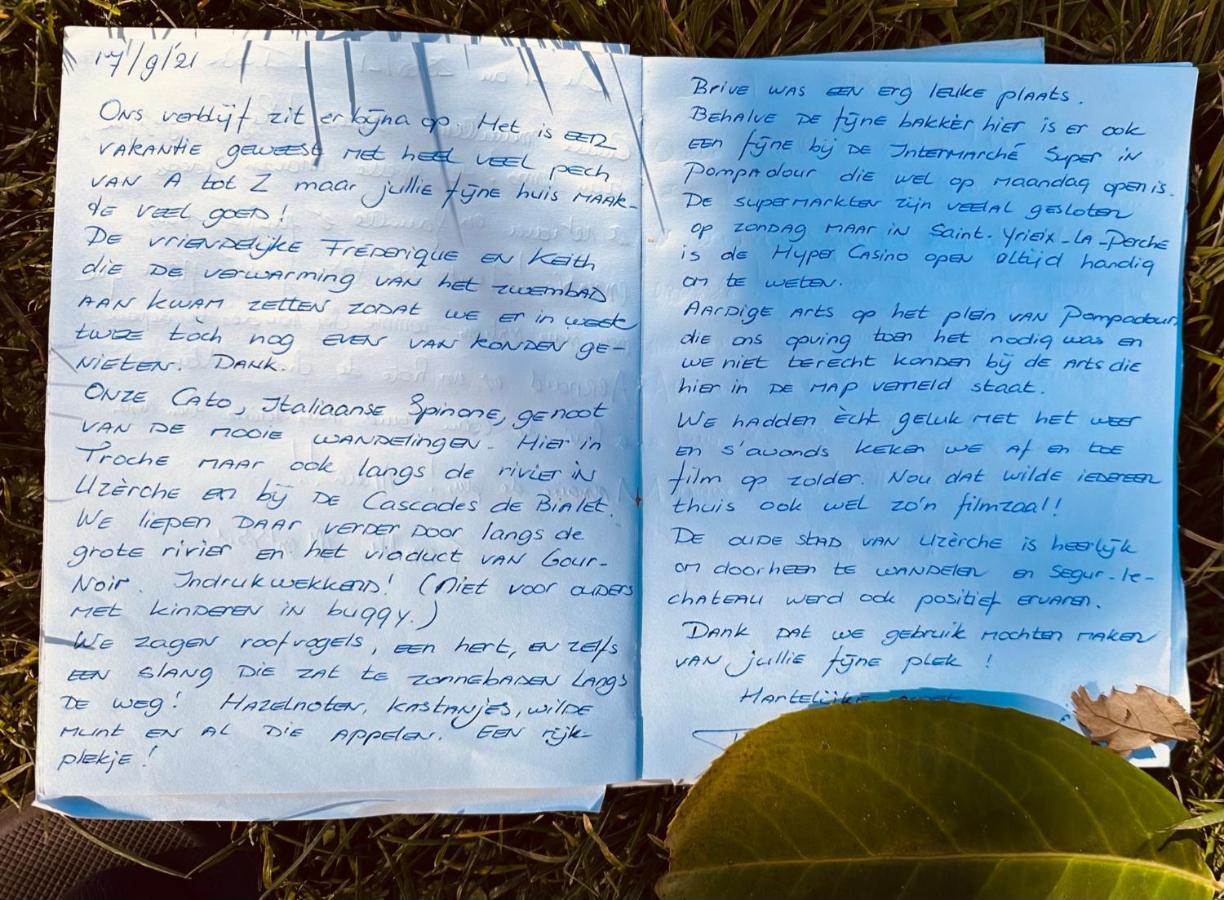 17/9/'21
Ons verblijf zit er bijna op. Het is een
vakantie geweest met heel veel pech
van A tot Z maar jullie fijne huis maak-
te veel goed!
De vriendelijke Fréderique en Keith
die de verwarming van het zwembad
aan kwam zetten zodat we er in week
twee tòch nog even van konden ge-
nieten. Dank.
Onze Cato, Italiaanse Spinone, genoot
van de mooie wandelingen. Hier in
Troche maar ook langs de rivier in
Uzèrche en bij de Cascades de Bialet.
We liepen daar verder door langs de
grote rivier en het viaduct van Gour-
Noir. Indrukwekkend! (Niet voor ouders
met kinderen in buggy.)
We zagen roofvogels, een hert, en zelfs
een slang die zat te zonnebaden langs
de weg! Hazelnoten, kastanjes, wilde
munt en al die appelen. Een rijk
plekje!
Brive was een erg leuke plaats.
Behalve de fijne bakker hier is er ook
een fijne bij de Intermarché Super in
Pompadour die wel op maandag open is.
De supermarkten zijn veelal gesloten
op zondag maar in Saint-Yrieix-la-Perche
is de Hyper Casino open altijd handig
om te weten.
Aardige arts op het plein van Pompadour
die ons opving toen het nodig was en
we niet terecht konden bij de arts die
hier in de map vermeld staat.
We hadden ècht geluk met het weer
en s'avonds keken we af en toe
film op zolder. Nou dat wilde iedereen
thuis ook wel zo'n filmzaal!
De oude stad van Uzèrche is heerlijk
om doorheen te wandelen en Segur-le-
chateau werd ook positief ervaren.
Dank dat we gebruik mochten maken
van jullie fijne plek!
Hartelijke